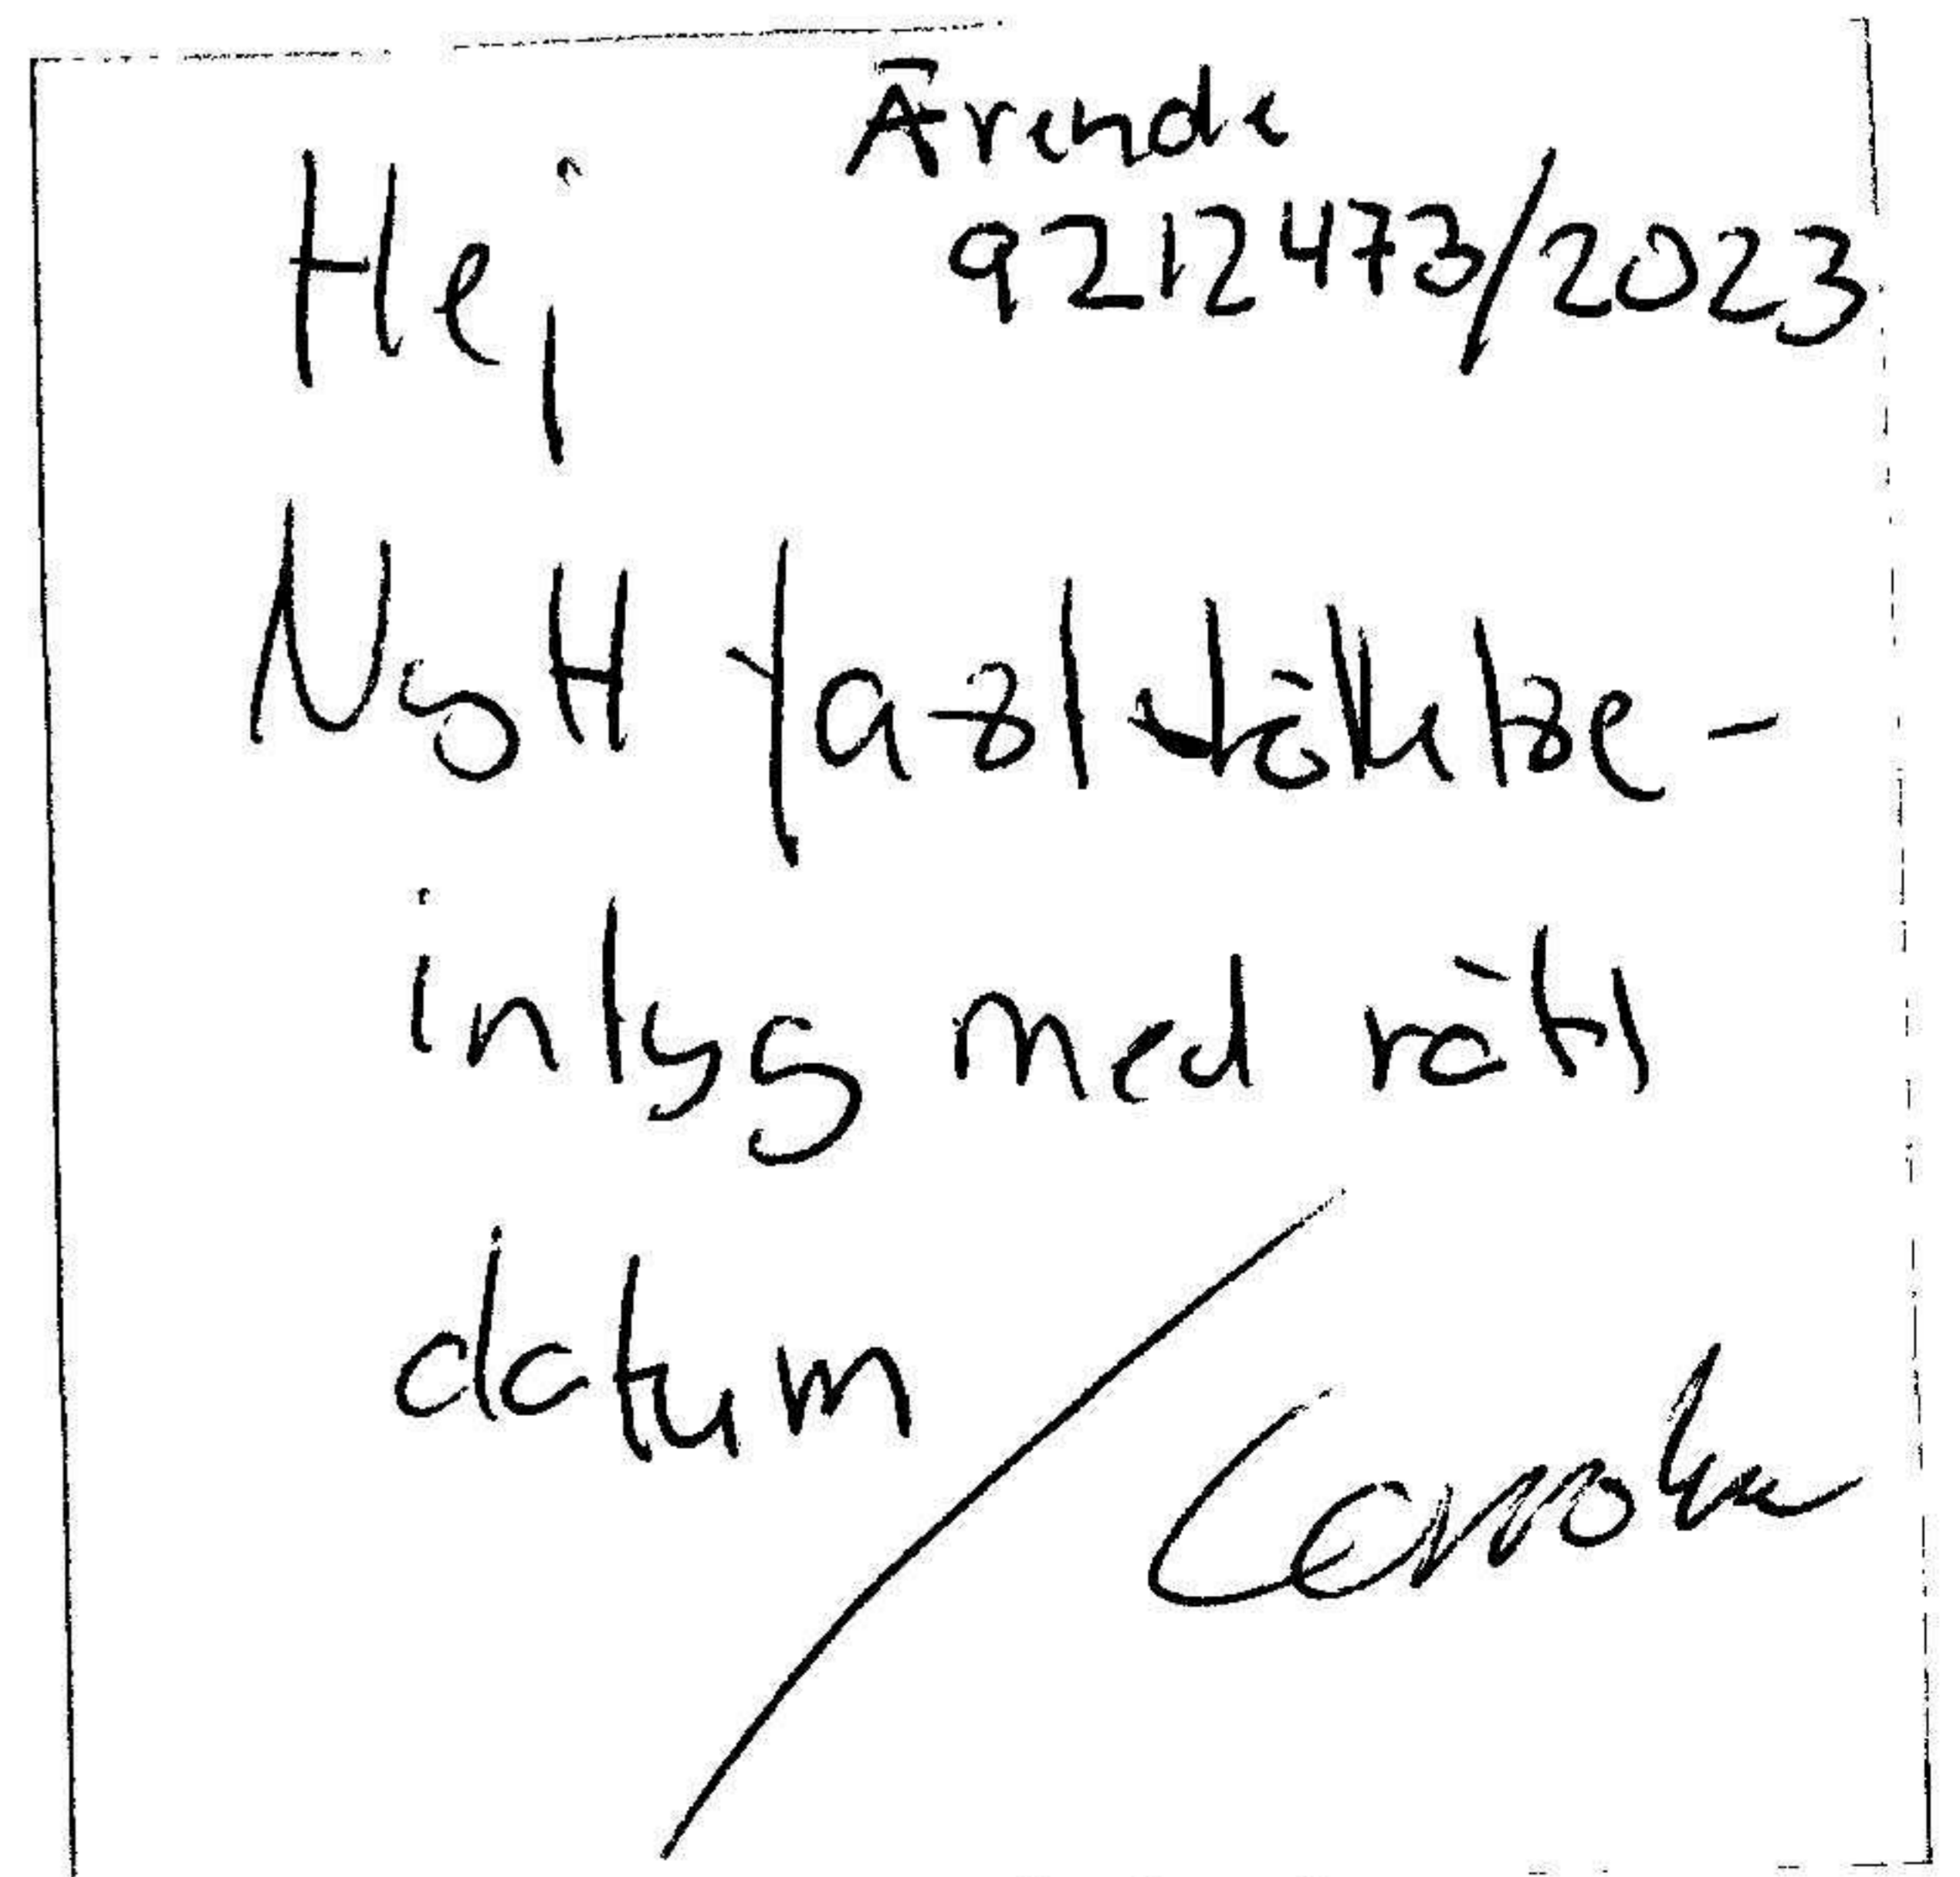 Ärende
Hej 9212473/2023
Nytt fastställelse-
intyg med rätt
datum